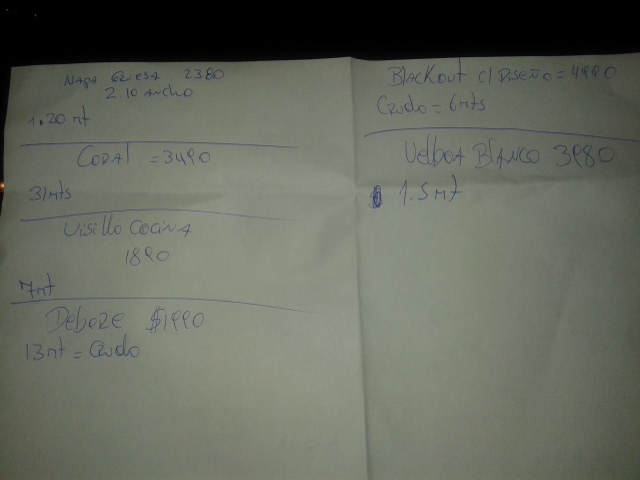 NAPA GRUESA 2380
2.10 ANCHO
1.20 mt
CORAL = 3490
31mts
Visillo Cocina
1890
7mt
Debore $1990
13mt = Crudo
Blackout c/ Diseño = 4990
Crudo = 6mts
Velboa Blanco 3980
1.5 mt